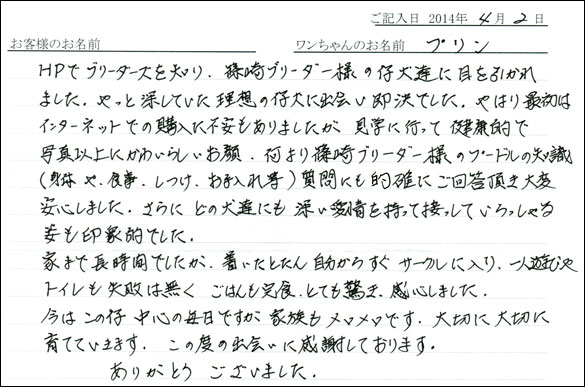 ご記入日 2014年 4月 2日
お客様のお名前 ワンちゃんのお名前 プリン
HPでブリーダー犬を知り、篠崎ブリーダー様の仔犬達に目を引かれ
ました。やっと探していた理想の仔犬に出会い即決でした。やはり最初は
インターネットでの購入に不安もありましたが 見学に行って 健康的で
写真以上にかわいらしいお顔、何より篠崎ブリーダー様のプードルの知識
(身体 や、食事、しつけ、お手入れ等) 質問にも的確にご回答頂き大変
安心しました。さらに どの犬達にも 深い愛情を持って接っしていらっしゃる
姿も印象的でした。
家まで長時間でしたが、着いたとたん 自分からすぐ サークルに入り、一人遊びや
トイレも失敗は無く ごはんも完食、とても驚き、感心しました。
今は この仔 中心の毎日ですが 家族もメロメロです。大切に大切に
育てていきます。 この度の出会いに感謝しております。
ありがとう ございました。